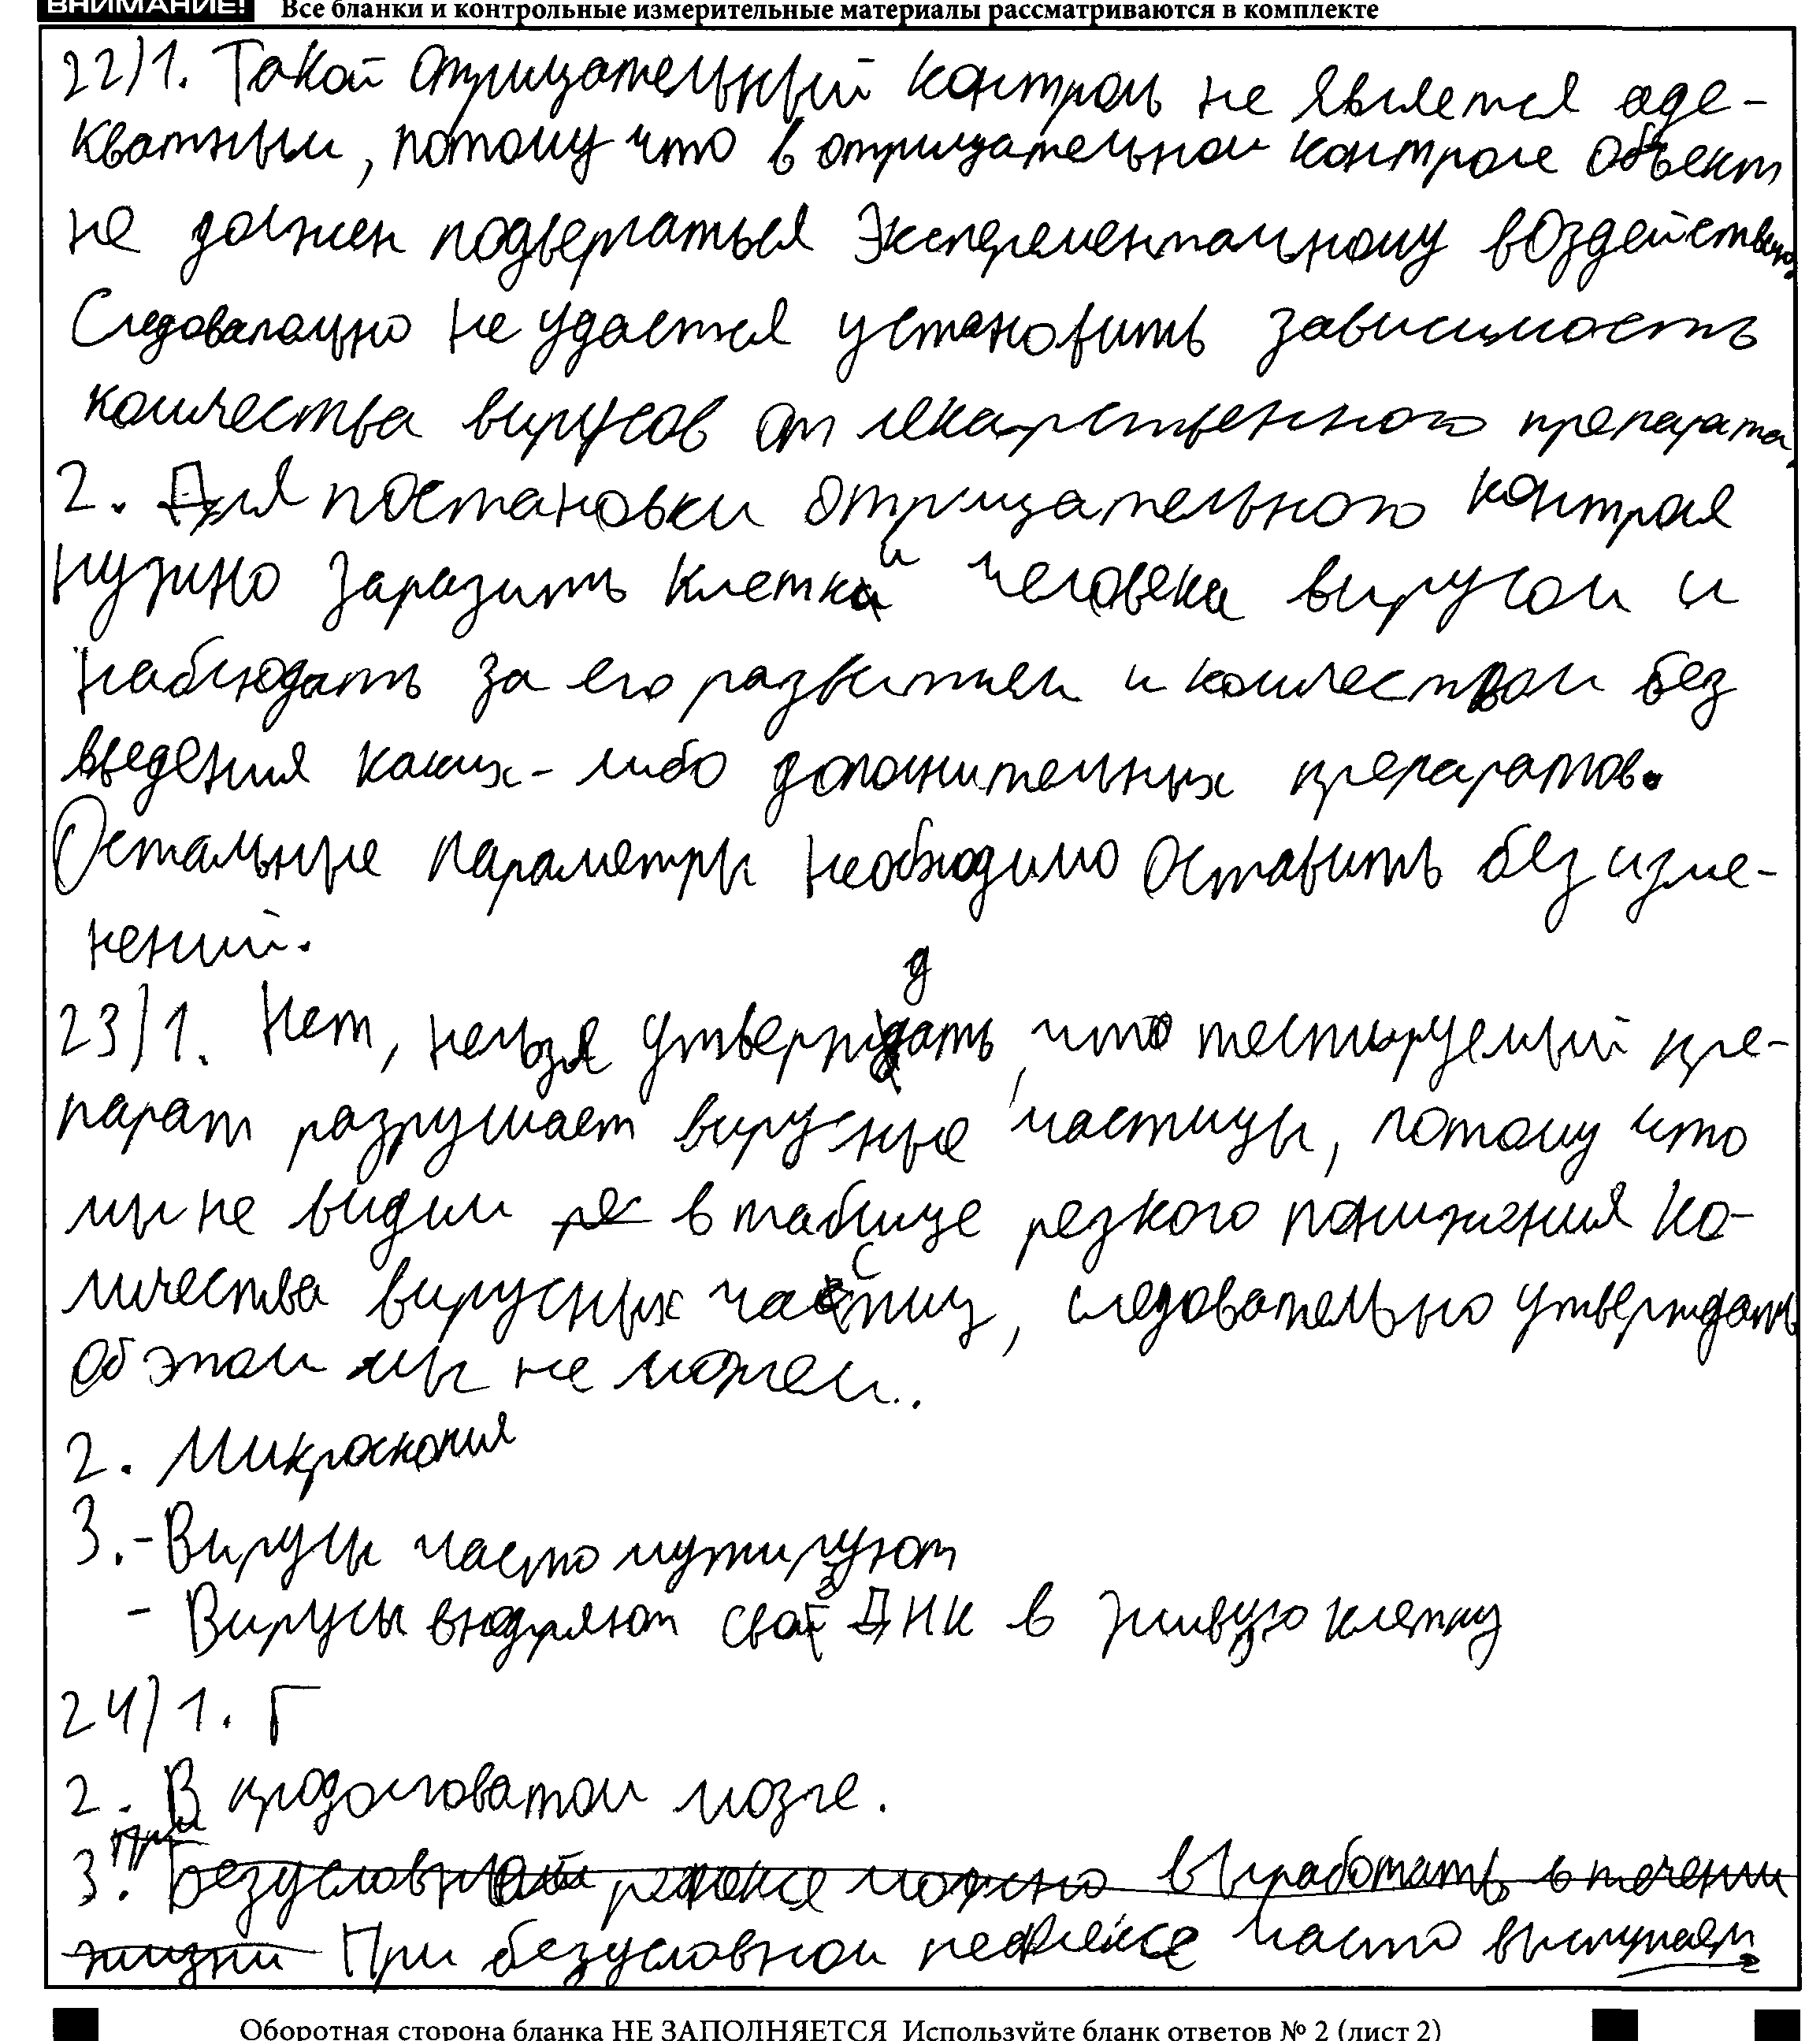 ВНИМАНИЕ! Все бланки и контрольные измерительные материалы рассматриваются в комплекте
22)1. Такой отрицательный контроль не является аде-
кватным, потому что в отрицательном контроле объект
не должен подвергаться эксперементальному воздействию,
Следовалаьно не удастся установить зависимость
количества вирусов от лекарственного препарата,
2. Для постановки отрицательного контроля
нужно заразить клетки человека вирусом и
наблюдать за его развитием и количеством без
введения каких-либо дополнительных препаратов.
Остальные параметры необходимо оставить без изме-
нений.
23)1. Нет, нельзя утверждать, что тестируемый пре-
парат разрушает вирусные частицы, потому что
мы не видим ре в таблице резкого понижения ко-
личества вирусных частиц, следовательно утверждать
об этом мы не можем..
2. Микроскопия
3. - Вирусы часто мутируют
- Вирусы внедряют свою ДНК в живую клетку
24)1. Г
2. В продолговатом мозге.
3. При Безусловный рефлекс можно выработать в течении
жизни При безусловном рефлексе часто выступает
Оборотная сторона бланка НЕ ЗАПОЛНЯЕТСЯ Используйте бланк ответов № 2 (лист 2)